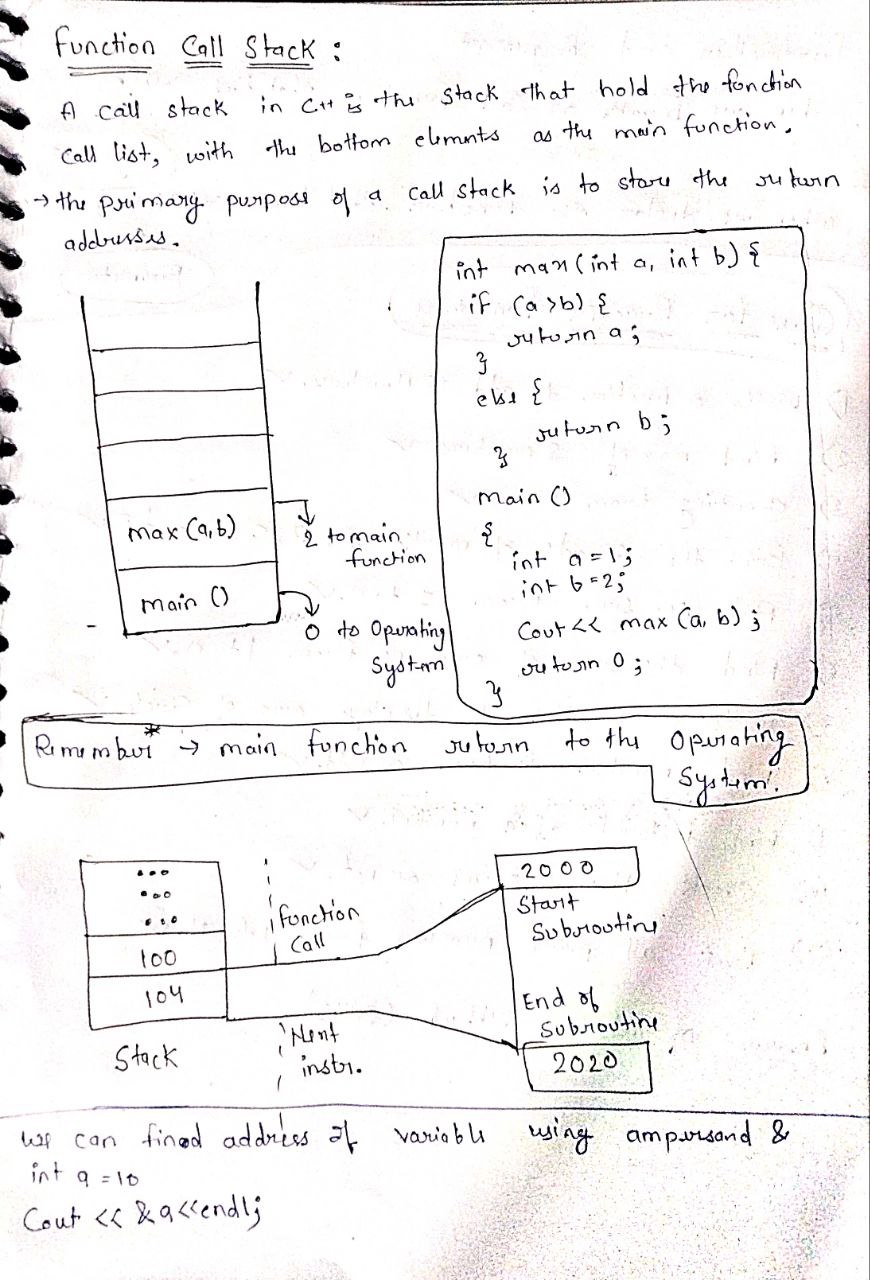 Function Call Stack :
A call stack in C++ is the stack that hold the fonction
Call list, with the bottom elements as the main function.
→ the primary purpose of a call stack is to store the return
addresses.
int max (int a, int b) {
if (a > b) {
return a;
}
else {
return b;
}
main ()
{
int a = 1;
int b = 2;
Cout << max (a, b) ;
return 0 ;
}
max (a,b)
2 to main
function
main ()
0 to Operating
System
Remember* → main function return to the Operating
System.
...
...
...
100
104
Stack
function
Call
Next
instr.
2000
Start
Subroutine
End of
Subroutine
2020
We can fined address of variable using ampersand &
int a = 10
Cout << &a<<endl;